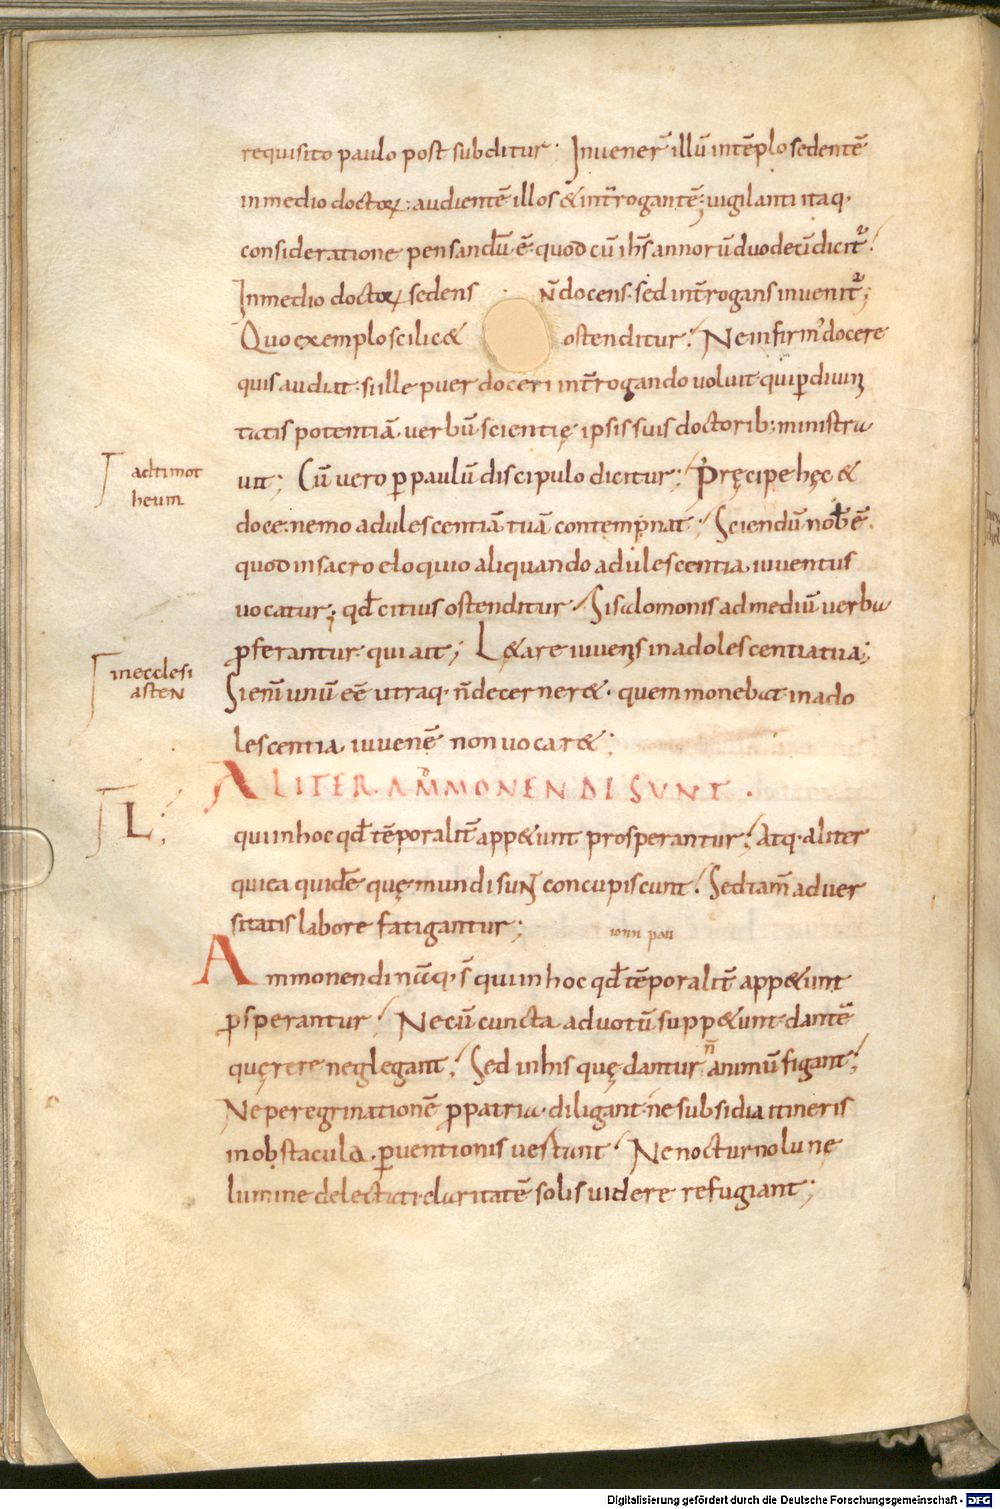 requisito paulo post subditur· Inuener̄ illū intēplo sedentē
inmedio doctoꝝ; audientē illos & int̄rogantē; uigilanti itaq·
consideratione pensandū ē· quod cū ih̄s annorū duodeci dicit᷑!
Inmedio doctoꝝ sedens n̄ docens· sed int̄rogans inuenit᷑;
Quo exemplo scilic& ostenditur! Ne infirm᾽ docere
quis audiat· si ille puer doceri int̄rogando uoluit· qui ꝑ diuini
tatis potentiā uerbū scientię ipsis suis doctorib; ministra
uit; Cū uero ꝑ paulū discipulo dicitur! Pręcipe hęc &
adtimot
heum
doce· nemo adulescentiā tuā contempnat! Sciendū nob̄ ē·
quod insacro eloquio aliquando adulescentia iuuentus
uocatur; qd̄ citius ostenditur! Si salomonis admediū uerba
ꝓferantur· qui ait; L&are iuuenis inadolescentia tua;
inecclesi
asten
Si enī unū eē utraq· n̄ decerner&· quem monebat inado
lescentia iuuenē non uocar&;
ALITER AMMONENDI SUNT·
L;
qui inhoc qd̄ tēporalit̄ app&unt prosperantur! Atq· aliter
qui ea quidē quę mundi sunt concupiscunt! Sed tam̄ aduer
sitatis labore fatigantur;
Ammonendi nāq· s̄ qui inhoc qd̄ tēporalit̄ app&unt
ꝓsperantur! Ne cū cuncta aduotū supp&unt· dantē
quęrere neglegant! Sed inhis quę dantur n̄ animū figant!
Ne peregrinationē ꝓ patria diligant· ne subsidia itineris
inobstacula ꝑuentionis uertant! Ne nocturno lunę
lumine delectati· claritatē solis uidere refugiant;
Digitalisierung gefördert durch die Deutsche Forschungsgemeinschaft - DFG